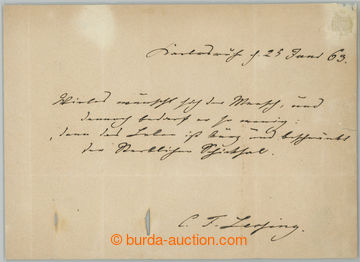 Karlsruhe d 25 Juni 63.
Vieles wünscht sich der Mensch, und
dennoch bedarf er so wenig:
denn das Leben ist kurz und beschränkt
der Sterblichen Schicksal.
C. F. Lessing.
burda-auction.com